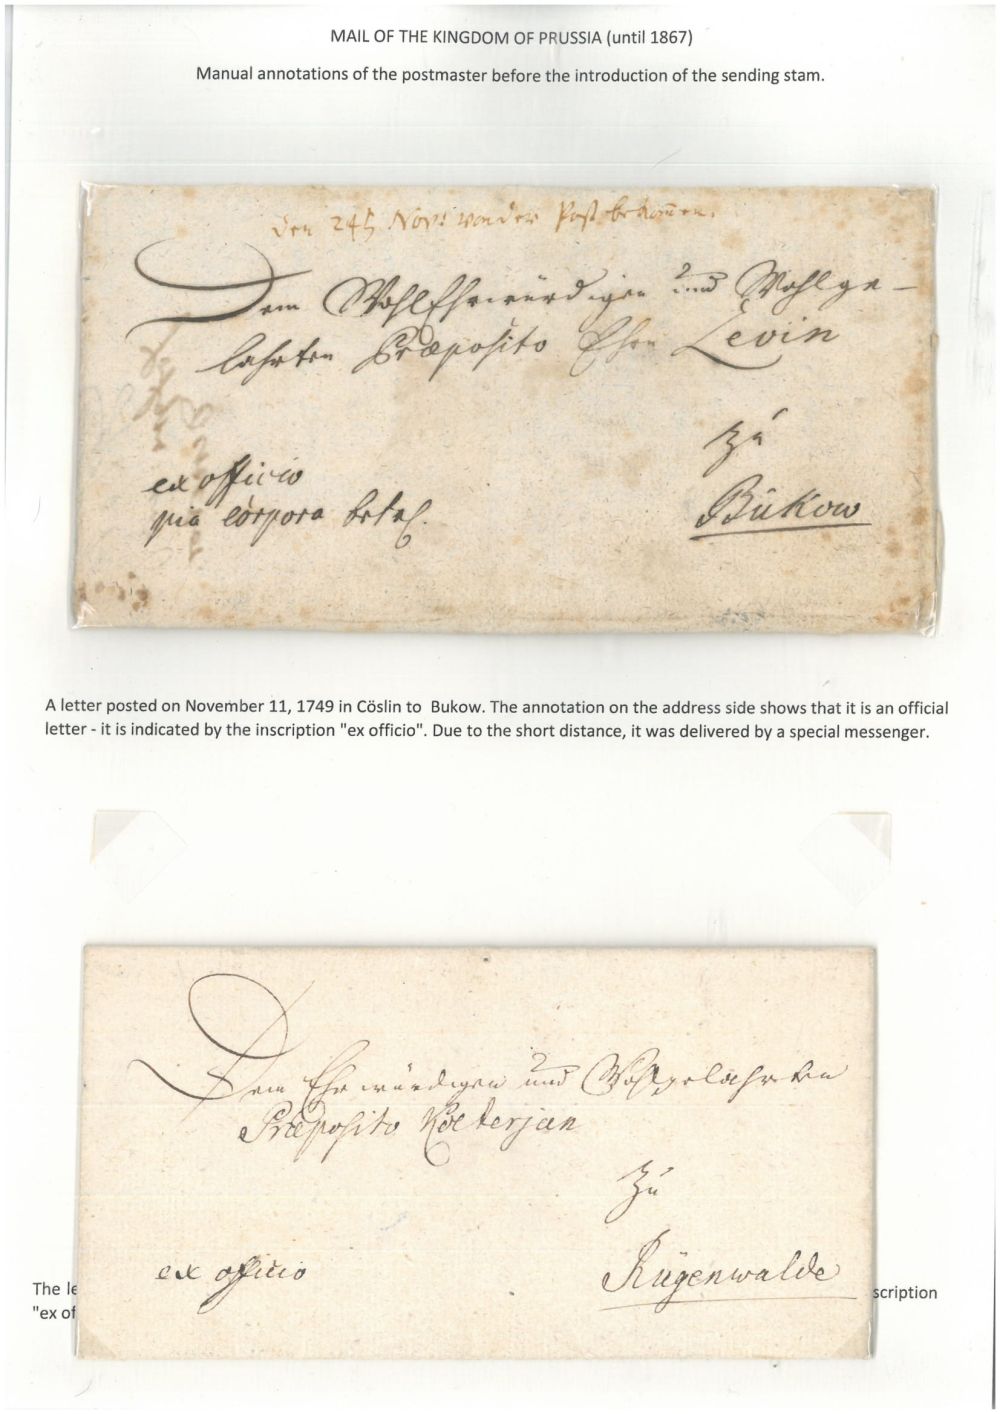 MAIL OF THE KINGDOM OF PRUSSIA (until 1867)
Manual annotations of the postmaster before the introduction of the sending stam.
den 24 Nov: von der Post bekom̄en.
Dem WohlEhrwürdigen und Wohlge-
lahrten Præposito Ehrn Levin
zu
ex officio
pia corpora
Bukow
A letter posted on November 11, 1749 in Cöslin to Bukow. The annotation on the address side shows that it is an official
letter - it is indicated by the inscription "ex officio". Due to the short distance, it was delivered by a special messenger.
Dem Ehrwürdigen und Wohlgelahrten
Præposito Koeterjan
zu
ex officio
Rügenwalde
The le
scription
"ex of